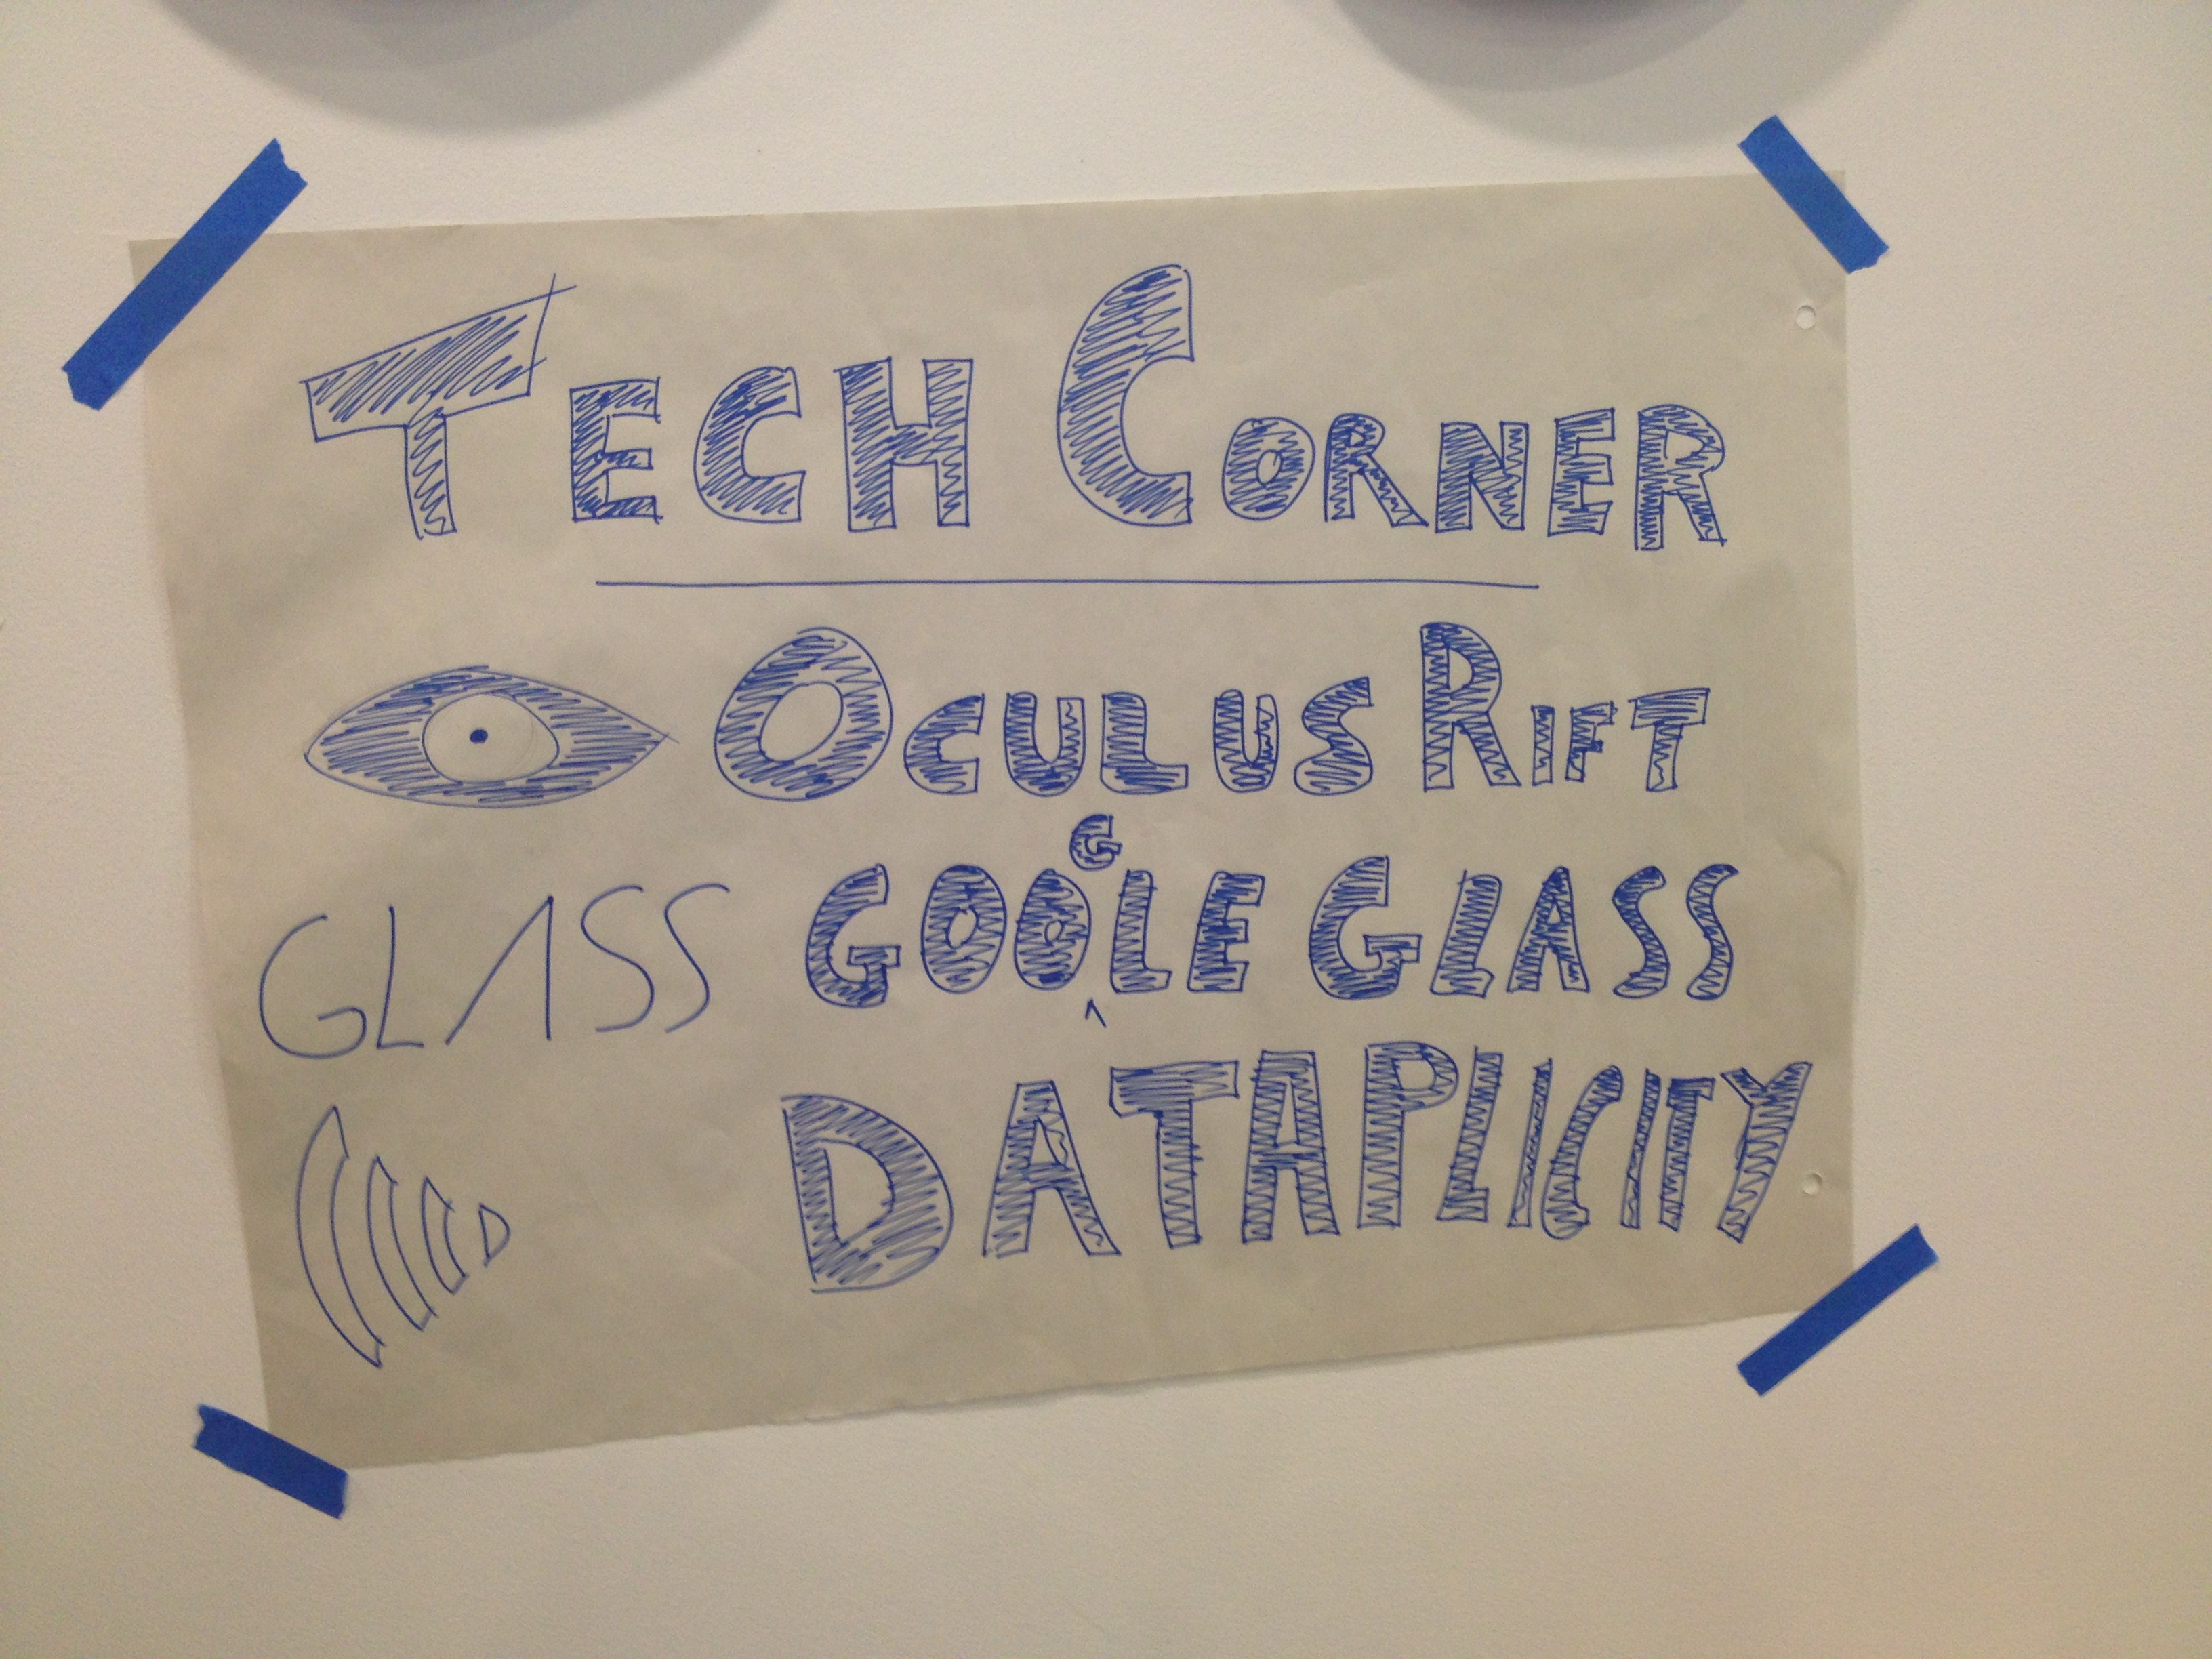 TECH CORNER
OCULUS RIFT
GLASS GOOGLE GLASS
DATAPLICITY